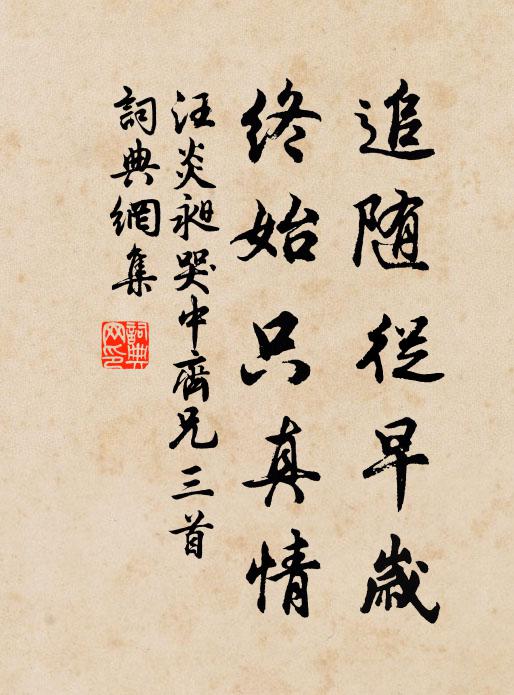 追随從早歲
終始只真情
汪炎昶哭中齋兄三首
詞典網集
詞典網印